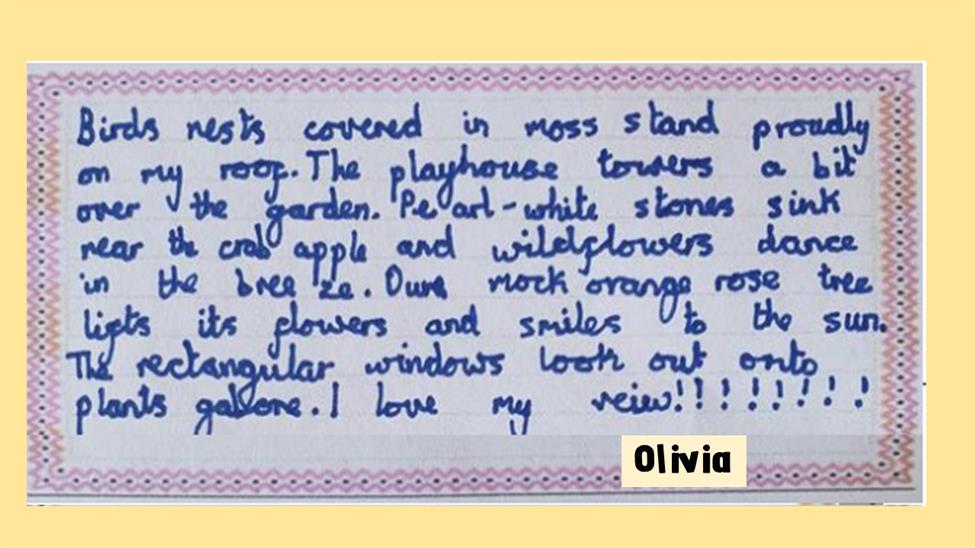 Birds nests covered in moss stand proudly
on my roof. The playhouse towers a bit
over the garden. Pearl-white stones sink
near the crab apple and wildflowers dance
in the breeze. Oure mock orange rose tree
lifts its flowers and smiles to the sun.
The rectangular windows look out onto
plants galore. I love my veiw!!!!!!!!!
Olivia